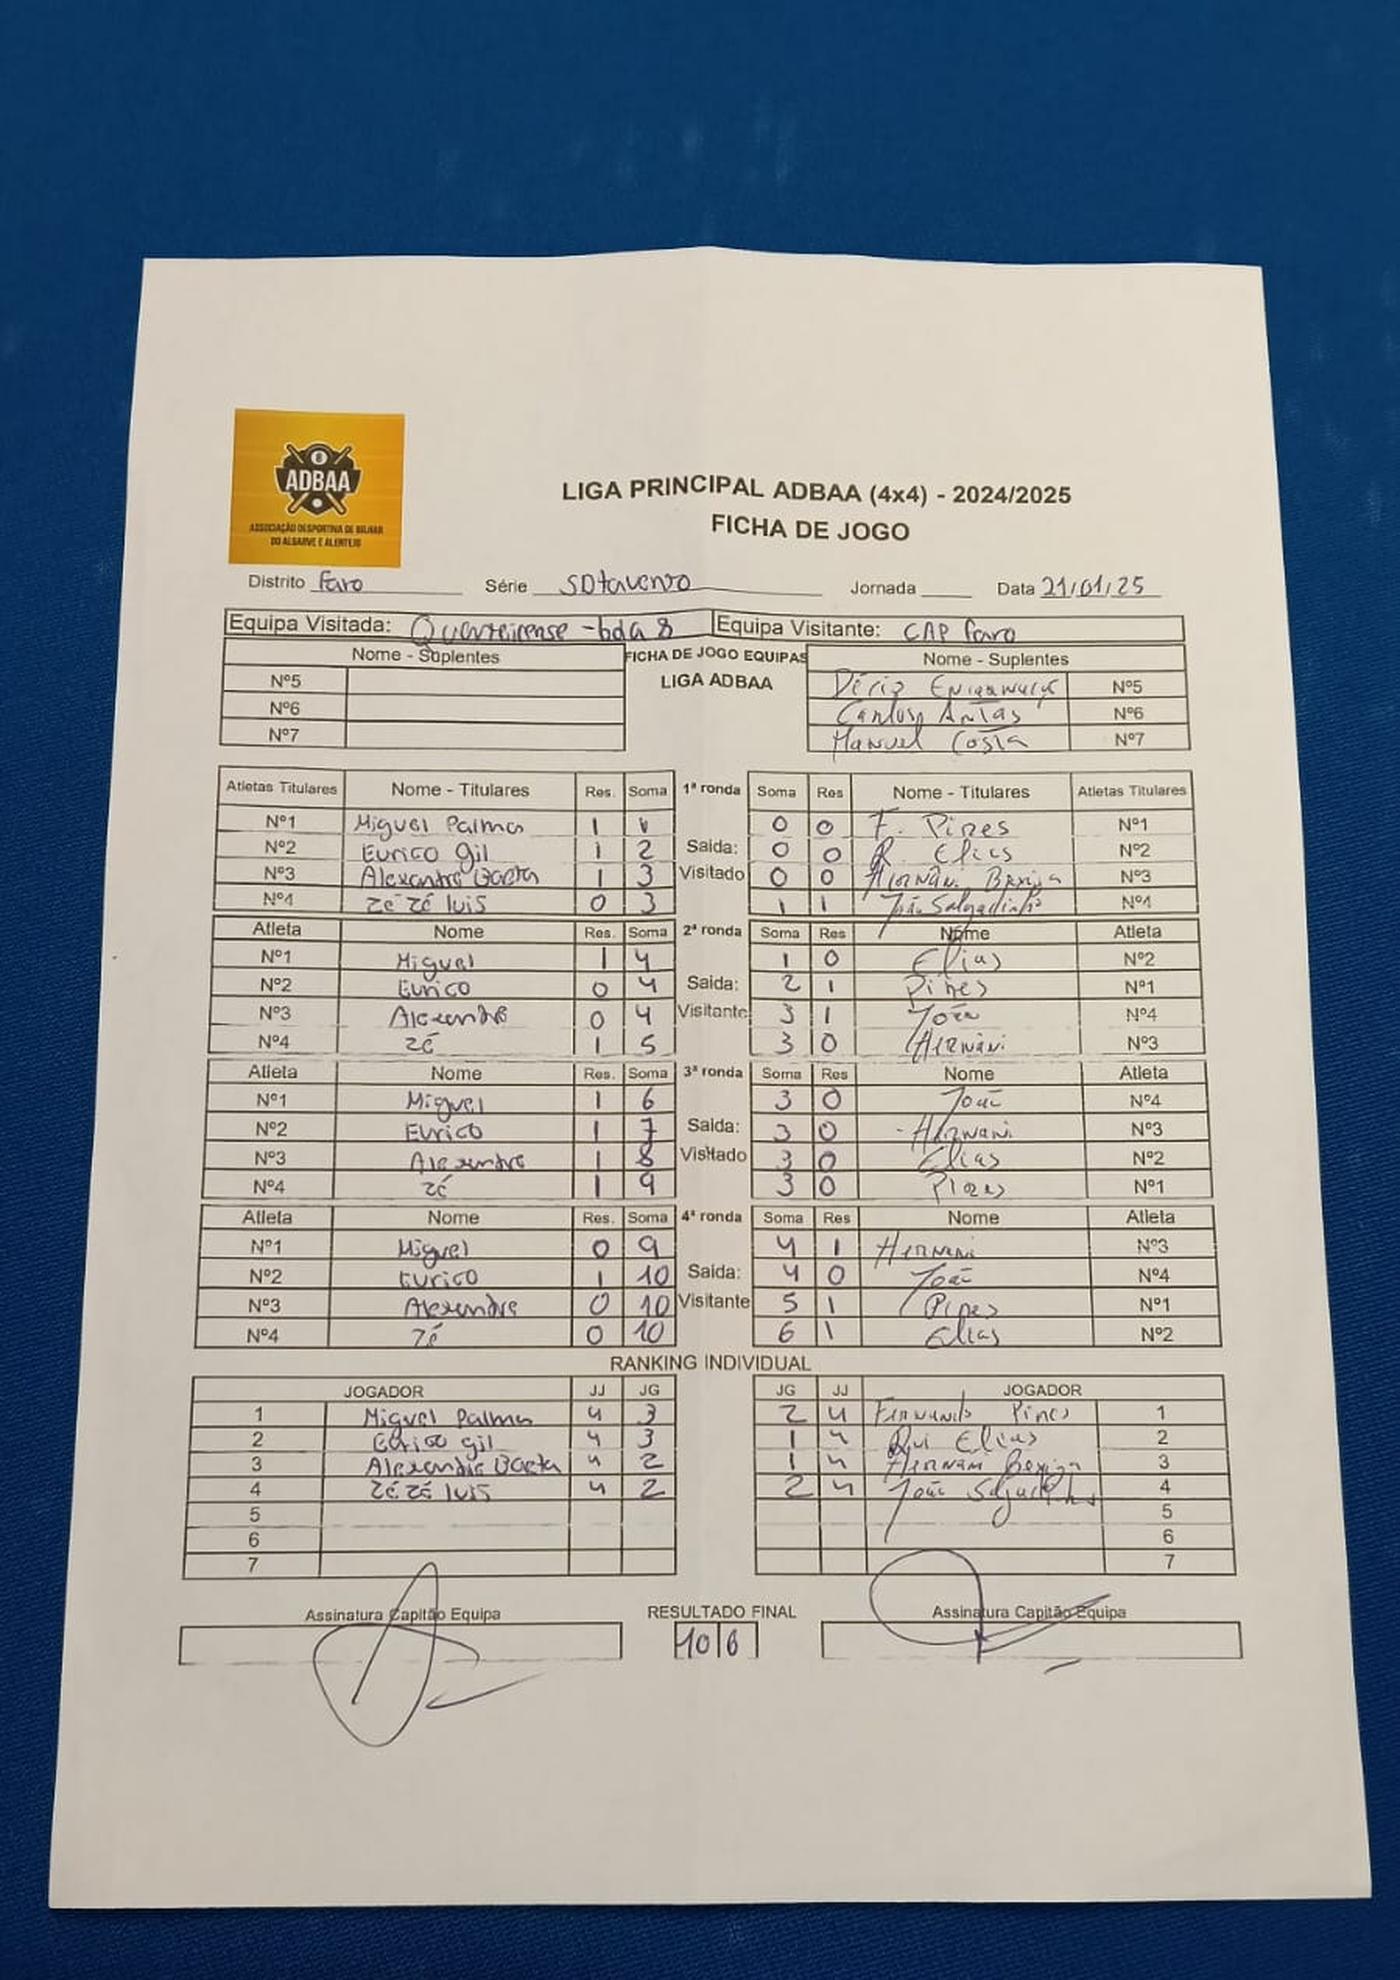 ADBAA
ASSOCIAÇÃO DESPORTIVA DE BILHAR
DO ALGARVE E ALENTEJO
LIGA PRINCIPAL ADBAA (4x4) - 2024/2025
FICHA DE JOGO
Distrito Faro Série SOtavento Jornada Data 21/01/25
Equipa Visitada: Quarteirense - bda 8 Equipa Visitante: CAP Faro
Nome - Suplentes FICHA DE JOGO EQUIPAS Nome - Suplentes
Nº5 LIGA ADBAA Nº5
Nº6 Carlos Nº6
Nº7 Manuel Costa Nº7
Atletas Titulares Nome - Titulares Res. Soma 1ª ronda Soma Res Nome - Titulares Atletas Titulares
Nº1 Miguel Palma 1 1 0 0 F. Pires Nº1
Nº2 Eurico Gil 1 2 Saida: 0 0 R. Elias Nº2
Nº3 Alexandre Baeta 1 3 Visitado 0 0 Hernâni Nº3
Nº4 Zé Zé luis 0 3 1 1 João Salgadinho Nº4
Atleta Nome Res. Soma 2ª ronda Soma Res Nome Atleta
Nº1 Miguel 1 4 1 0 Elias Nº2
Nº2 Eurico 0 4 Saida: 2 1 Pires Nº1
Nº3 Alexandre 0 4 Visitante 3 1 João Nº4
Nº4 Zé 1 5 3 0 Hernâni Nº3
Atleta Nome Res. Soma 3ª ronda Soma Res Nome Atleta
Nº1 Miguel 1 6 3 0 João Nº4
Nº2 Eurico 1 7 Saida: 3 0 - Hernani Nº3
Nº3 Alexandre 1 8 Visitado 3 0 Elias Nº2
Nº4 Zé 1 9 3 0 Pires Nº1
Atleta Nome Res. Soma 4ª ronda Soma Res Nome Atleta
Nº1 Miguel 0 9 4 1 Hernani Nº3
Nº2 Eurico 1 10 Saida: 4 0 João Nº4
Nº3 Alexandre 0 10 Visitante 5 1 Pires Nº1
Nº4 Zé 0 10 6 1 Elias Nº2
RANKING INDIVIDUAL
JOGADOR JJ JG JG JJ JOGADOR
1 Miguel Palma 4 3 2 4 Fernando Pires 1
2 Eurico Gil 4 3 1 4 Rui Elias 2
3 Alexandre Baeta 4 2 1 4 Hernani 3
4 Zé Zé luis 4 2 2 4 João Salgadinho 4
5 5
6 6
7 7
Assinatura Capitão Equipa RESULTADO FINAL Assinatura Capitão Equipa
10 6